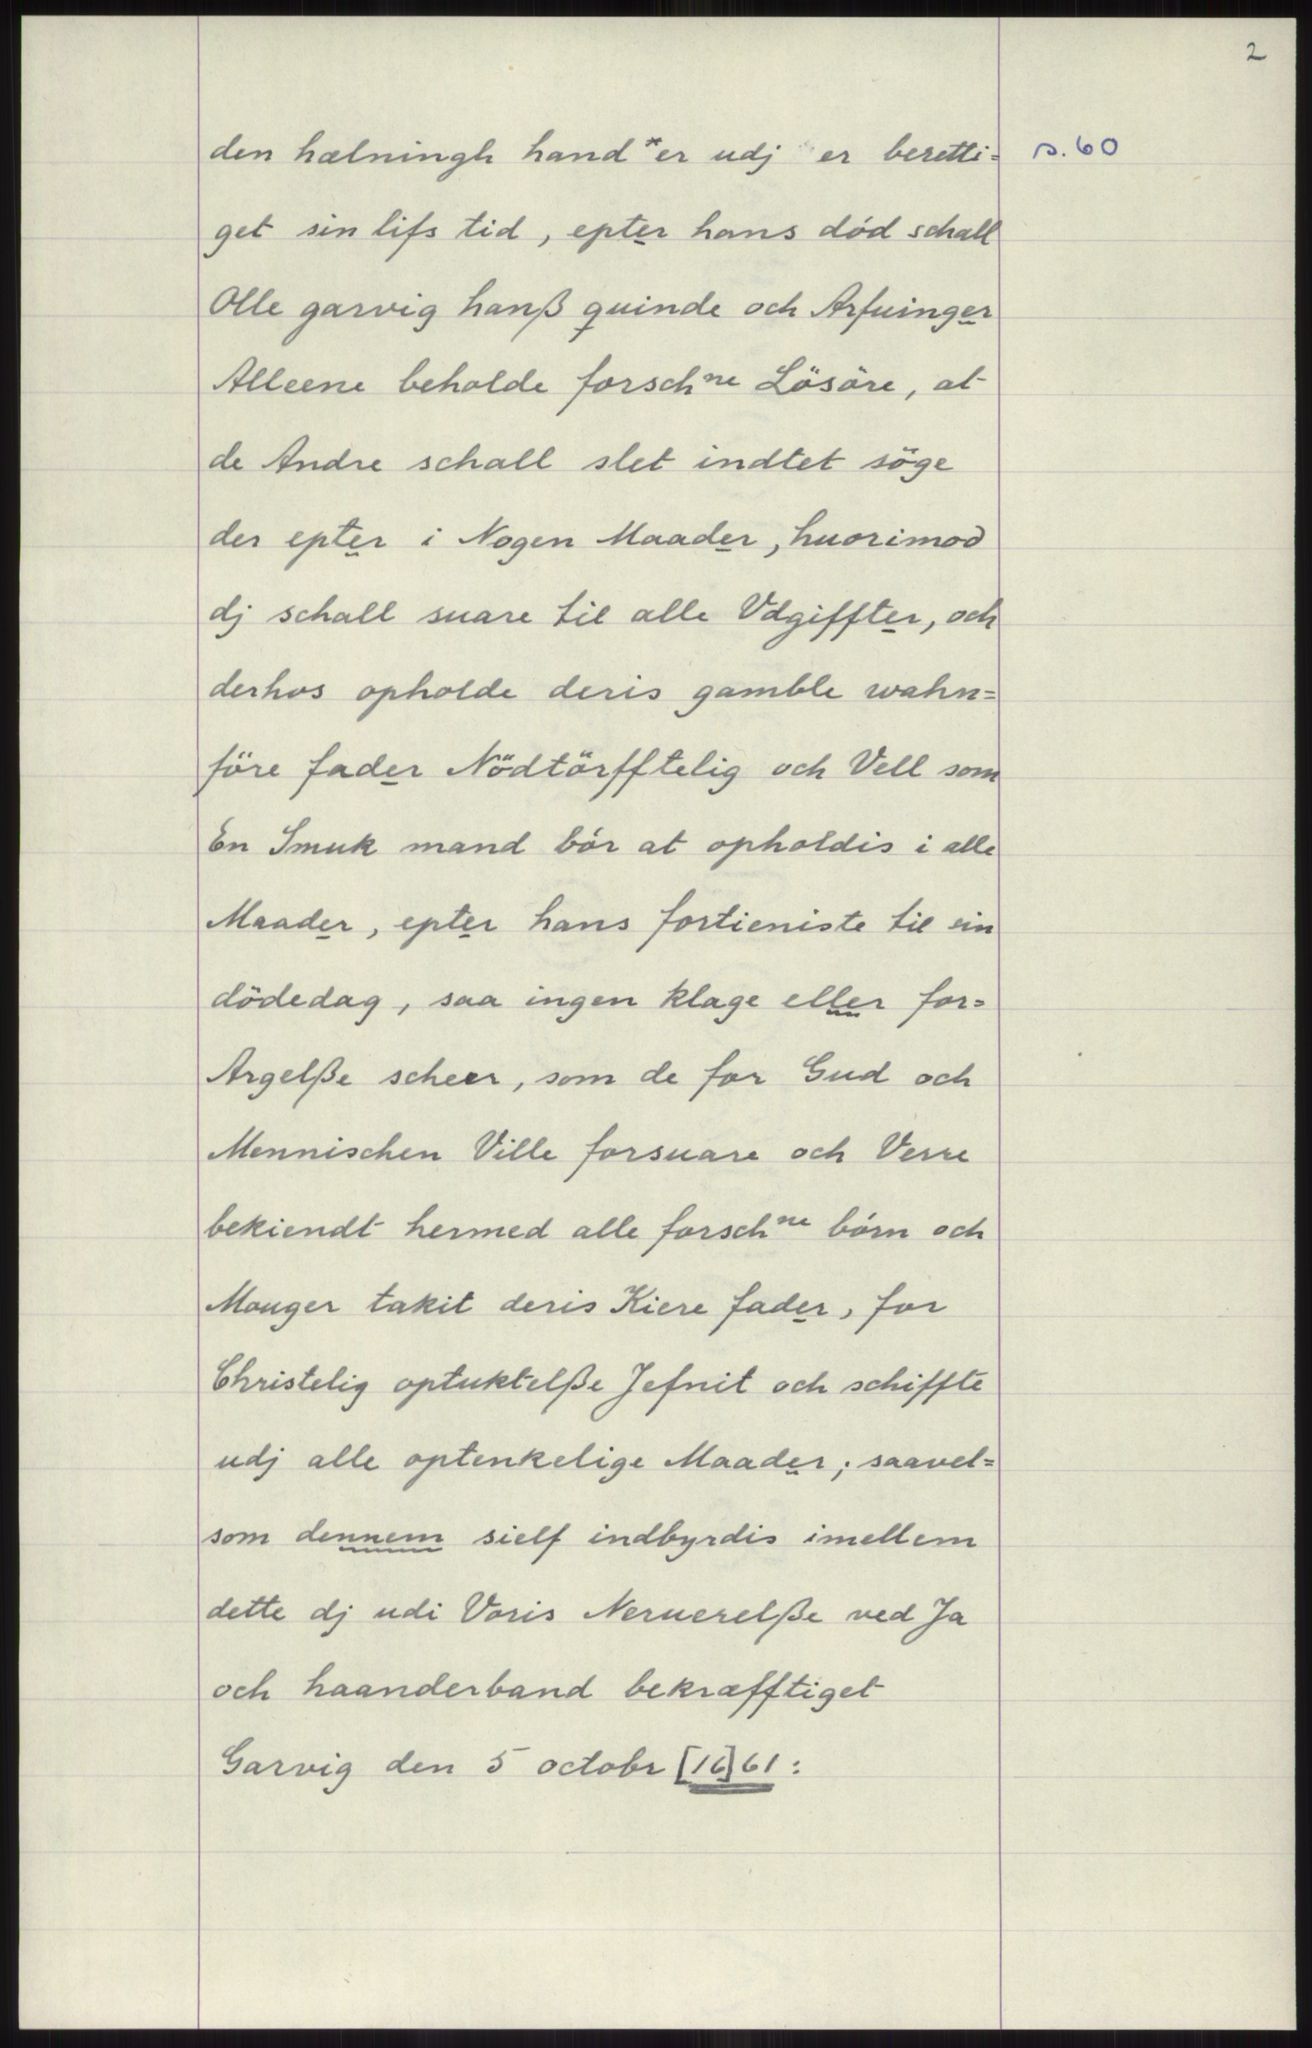 2
den hælningh hand *er udj er beretti= s. 60
get sin lifs tid, epter hans död schall
Olle garvig hanß quinde och Arfuinger
Alleene beholde forschne Lösöre, at
de Andre schall slet indtet söge
der epter i Nogen Maader, huorimod
dj schall suare til alle Vdgiffter, och
derhos opholde deris gamble wahn=
före fader Nödtörfftelig och Vell som
En Smuk mand bör at opholdis i alle
Maader, epter hans fortieniste til sin
dödedag, saa ingen klage eller for=
Argelße scheer, som de for Gud och
Mennischen Ville forsuare och Verre
bekiendt hermed alle forschne börn och
Mouger takit deris Kiere fader, for
Christelig optuktelße Jefnit och schiffte
udj alle optenkelige Maader; saavel=
som dennem sielf indbyrdis imellem
dette dj udi Voris Neruerelße ved Ja
och haanderband bekræfftiget
Garvig den 5 octobr [16]61: